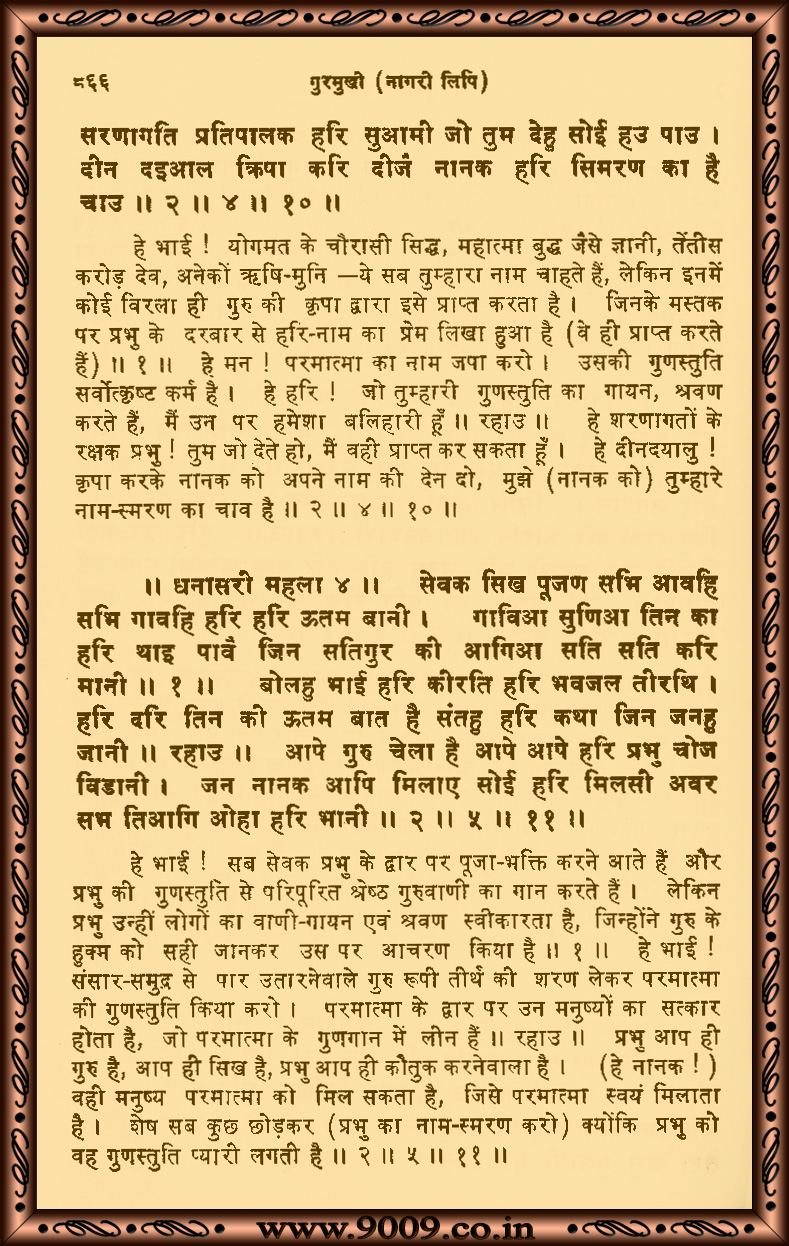 ८६६ गुरमुखी (नागरी लिपि)
सरणागति प्रतिपालक हरि सुआमी जो तुम देहु सोई हउ पाउ ।
दीन दइआल क्रिपा करि दीजै नानक हरि सिमरण का है
चाउ ॥ २ ॥ ४ ॥ १० ॥
हे भाई ! योगमत के चौरासी सिद्ध, महात्मा बुद्ध जैसे ज्ञानी, तेंतीस
करोड़ देव, अनेकों ऋषि-मुनि —ये सब तुम्हारा नाम चाहते हैं, लेकिन इनमें
कोई विरला ही गुरु की कृपा द्वारा इसे प्राप्त करता है । जिनके मस्तक
पर प्रभु के दरबार से हरि-नाम का प्रेम लिखा हुआ है (वे ही प्राप्त करते
हैं) ॥ १ ॥ हे मन ! परमात्मा का नाम जपा करो । उसकी गुणस्तुति
सर्वोत्कृष्ट कर्म है । हे हरि ! जो तुम्हारी गुणस्तुति का गायन, श्रवण
करते हैं, मैं उन पर हमेशा बलिहारी हूँ ॥ रहाउ ॥ हे शरणागतों के
रक्षक प्रभु ! तुम जो देते हो, मैं वही प्राप्त कर सकता हूँ । हे दीनदयालु !
कृपा करके नानक को अपने नाम की देन दो, मुझे (नानक को) तुम्हारे
नाम-स्मरण का चाव है ॥ २ ॥ ४ ॥ १० ॥
॥ धनासरी महला ४ ॥ सेवक सिख पूजण सभि आवहि
सभि गावहि हरि हरि ऊतम बानी । गाविआ सुणिआ तिन का
हरि थाइ पावै जिन सतिगुर की आगिआ सति सति करि
मानी ॥ १ ॥ बोलहु भाई हरि कीरति हरि भवजल तीरथि ।
हरि दरि तिन की ऊतम बात है संतहु हरि कथा जिन जनहु
जानी ॥ रहाउ ॥ आपे गुरु चेला है आपे आपे हरि प्रभु चोज
विडानी । जन नानक आपि मिलाए सोई हरि मिलसी अवर
सभ तिआगि ओहा हरि भानी ॥ २ ॥ ५ ॥ ११ ॥
हे भाई ! सब सेवक प्रभु के द्वार पर पूजा-भक्ति करने आते हैं और
प्रभु की गुणस्तुति से परिपूरित श्रेष्ठ गुरुवाणी का गान करते हैं । लेकिन
प्रभु उन्हीं लोगों का वाणी-गायन एवं श्रवण स्वीकारता है, जिन्होंने गुरु के
हुक्म को सही जानकर उस पर आचरण किया है ॥ १ ॥ हे भाई !
संसार-समुद्र से पार उतारनेवाले गुरु रूपी तीर्थ की शरण लेकर परमात्मा
की गुणस्तुति किया करो । परमात्मा के द्वार पर उन मनुष्यों का सत्कार
होता है, जो परमात्मा के गुणगान में लीन हैं ॥ रहाउ ॥ प्रभु आप ही
गुरु है, आप ही सिख है, प्रभु आप ही कौतुक करनेवाला है । (हे नानक ! )
वही मनुष्य परमात्मा को मिल सकता है, जिसे परमात्मा स्वयं मिलाता
है । शेष सब कुछ छोड़कर (प्रभु का नाम-स्मरण करो) क्योंकि प्रभु को
वह गुणस्तुति प्यारी लगती है ॥ २ ॥ ५ ॥ ११ ॥
www.9009.co.in